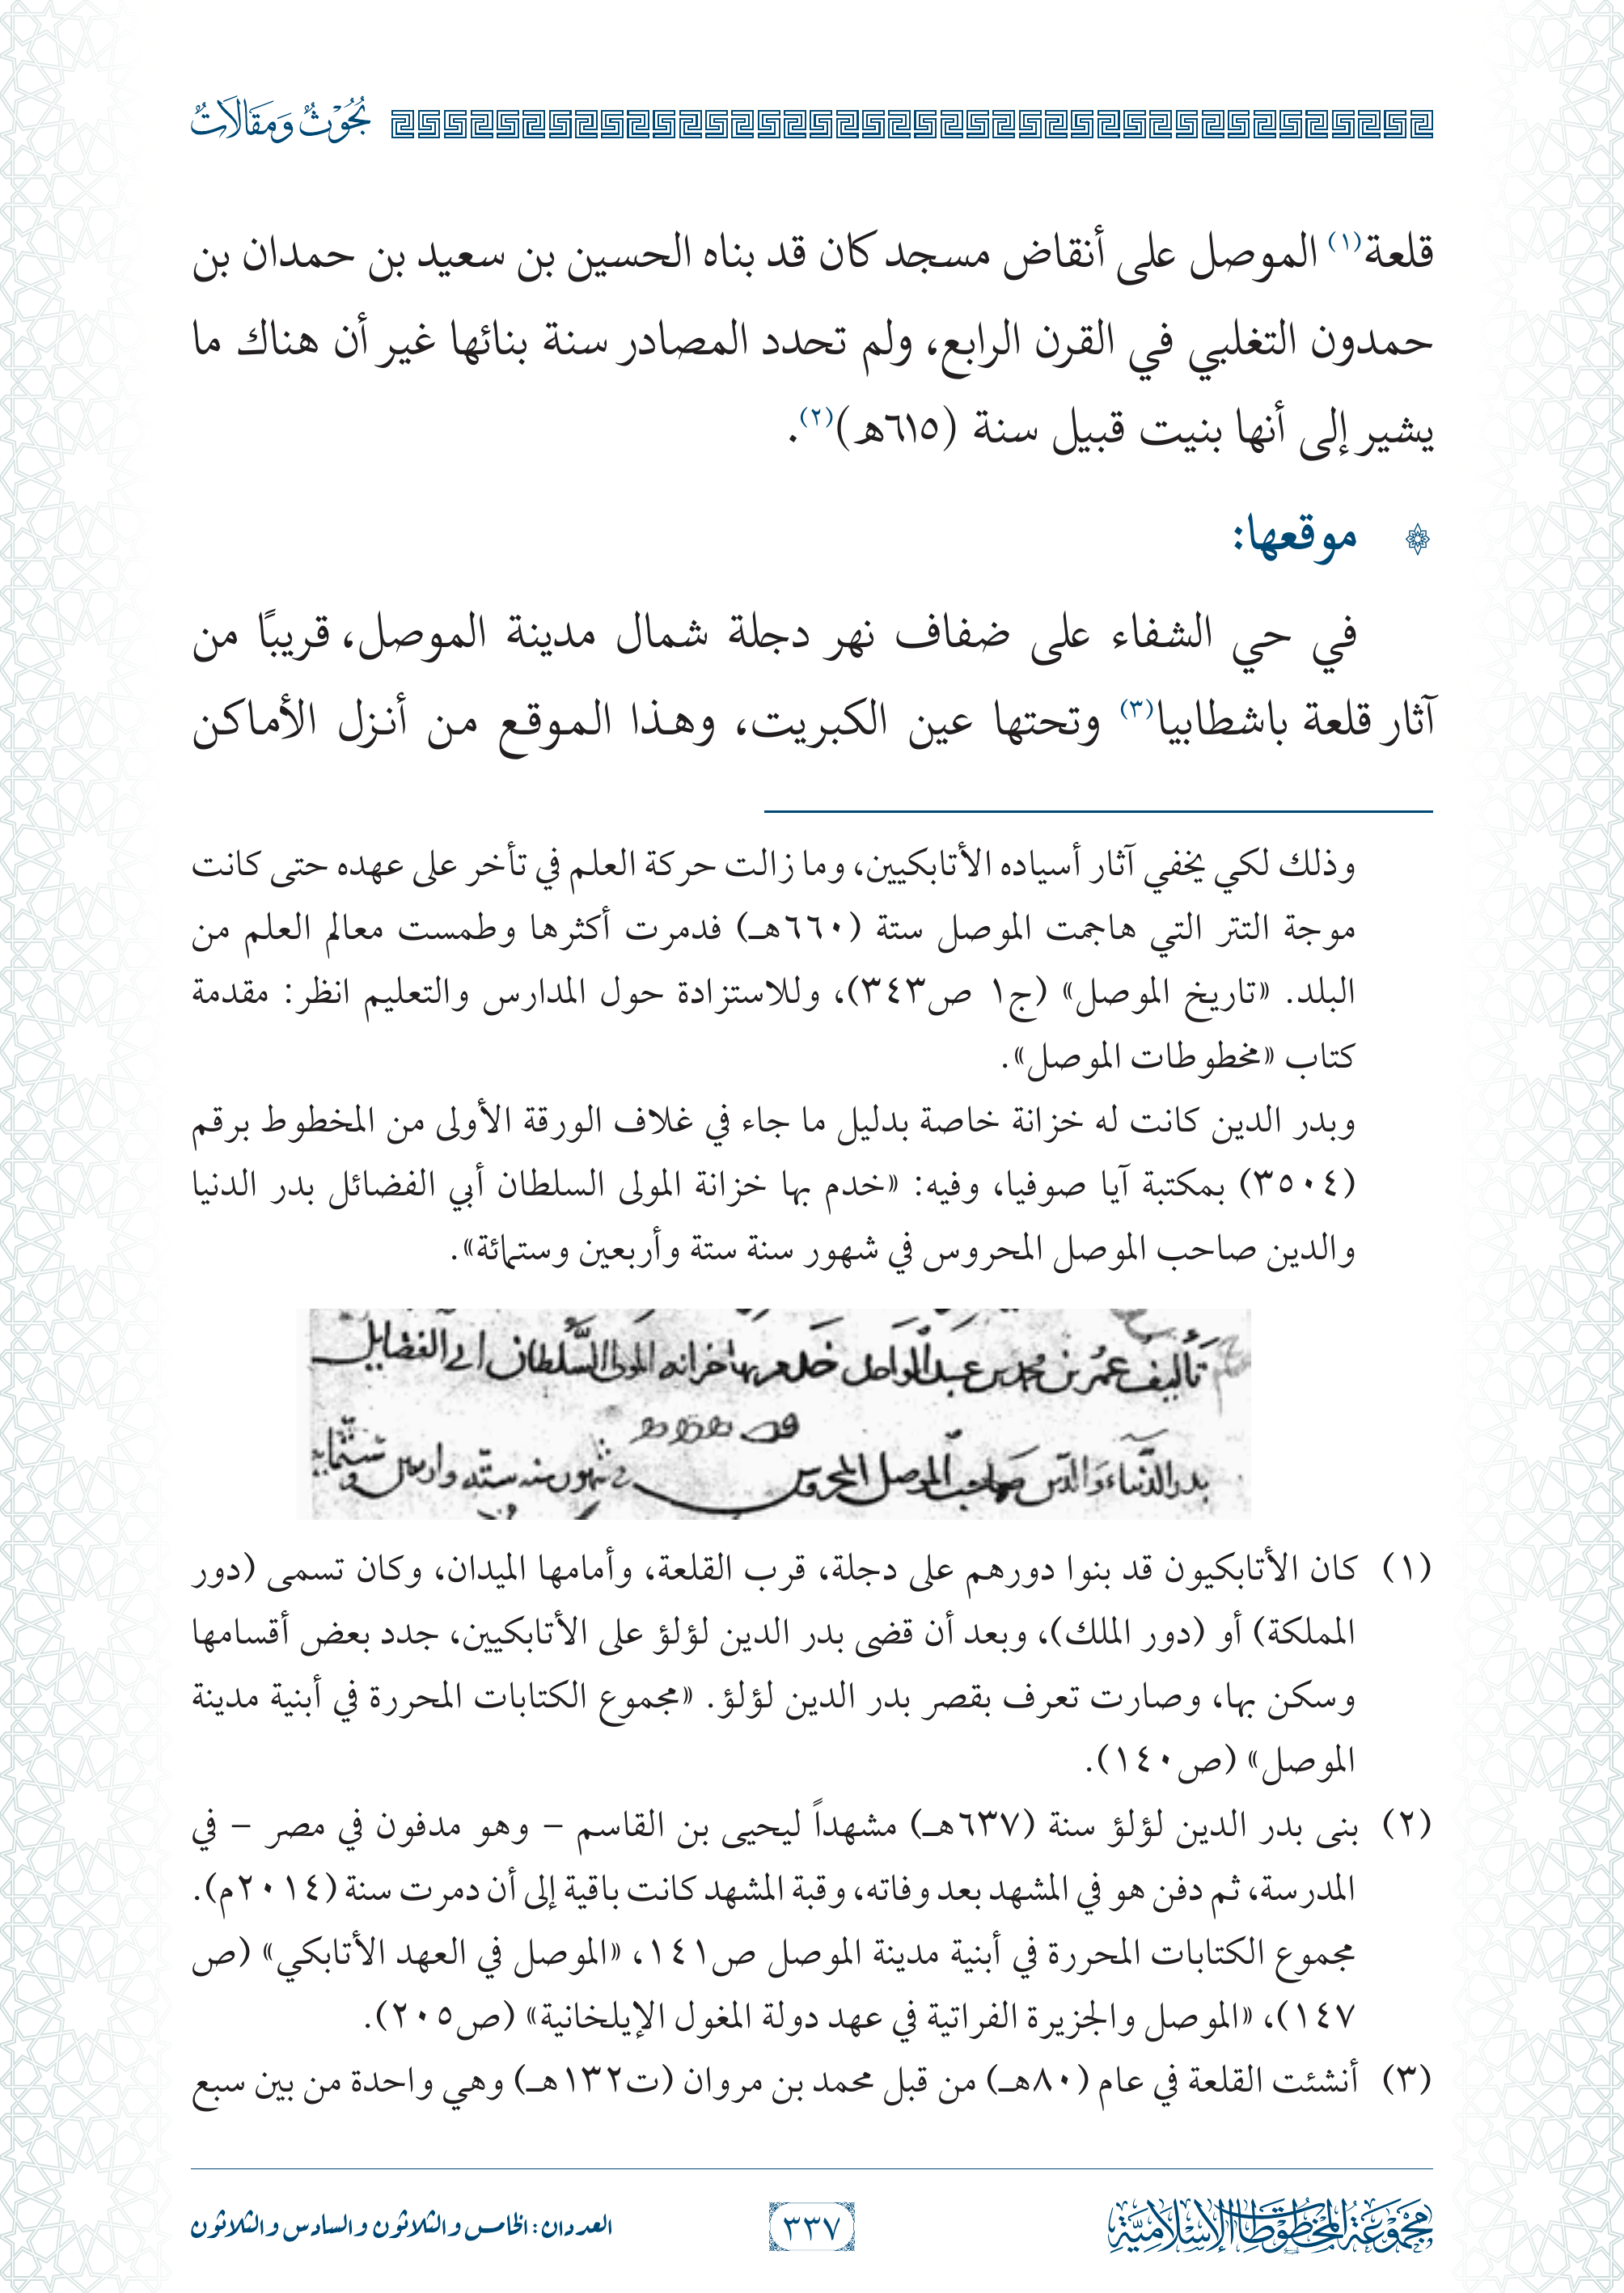 بُحُوْثٌ وَمَقَالَاتٌ
قلعة(١) الموصل على أنقاض مسجد كان قد بناه الحسين بن سعيد بن حمدان بن
حمدون التغلبي في القرن الرابع، ولم تحدد المصادر سنة بنائها غير أن هناك ما
يشير إلى أنها بنيت قبيل سنة (٦١٥هـ)(٢).
موقعها:
في حي الشفاء على ضفاف نهر دجلة شمال مدينة الموصل، قريبًا من
آثار قلعة باشطابيا(٣) وتحتها عين الكبريت، وهذا الموقع من أنزل الأماكن
وذلك لكي يخفي آثار أسياده الأتابكيين، وما زالت حركة العلم في تأخر على عهده حتى كانت
موجة التتر التي هاجمت الموصل ستة (٦٦٠هـ) فدمرت أكثرها وطمست معالم العلم من
البلد. «تاريخ الموصل» (ج١ ص٣٤٣)، وللاستزادة حول المدارس والتعليم انظر: مقدمة
كتاب «مخطوطات الموصل».
وبدر الدين كانت له خزانة خاصة بدليل ما جاء في غلاف الورقة الأولى من المخطوط برقم
(٣٥٠٤) بمكتبة آيا صوفيا، وفيه: «خدم بها خزانة المولى السلطان أبي الفضائل بدر الدنيا
والدين صاحب الموصل المحروس في شهور سنة ستة وأربعين وستمائة».
تأليف عمر بن محمد بن عبد الواحد خدم بها خزانه المولى السلطان ابى الفضايل
بدر الدنياء والدين صاحب الموصل المحروس فى شهور سنه ستة واربعين وستمايه
(١) كان الأتابكيون قد بنوا دورهم على دجلة، قرب القلعة، وأمامها الميدان، وكان تسمى (دور
المملكة) أو (دور الملك)، وبعد أن قضى بدر الدين لؤلؤ على الأتابكيين، جدد بعض أقسامها
وسكن بها، وصارت تعرف بقصر بدر الدين لؤلؤ. «مجموع الكتابات المحررة في أبنية مدينة
الموصل» (ص١٤٠).
(٢) بنى بدر الدين لؤلؤ سنة (٦٣٧هـ) مشهداً ليحيى بن القاسم – وهو مدفون في مصر – في
المدرسة، ثم دفن هو في المشهد بعد وفاته، وقبة المشهد كانت باقية إلى أن دمرت سنة (٢٠١٤م).
مجموع الكتابات المحررة في أبنية مدينة الموصل ص١٤١، «الموصل في العهد الأتابكي» (ص
١٤٧)، «الموصل والجزيرة الفراتية في عهد دولة المغول الإيلخانية» (ص٢٠٥).
(٣) أنشئت القلعة في عام (٨٠هـ) من قبل محمد بن مروان (ت١٣٢هـ) وهي واحدة من بين سبع
مَجْمُوعَةُ المَخْطُوطَاتِ الإِسْلَامِيَّةِ
٣٣٧
العددان: الخامس والثلاثون والسادس والثلاثون